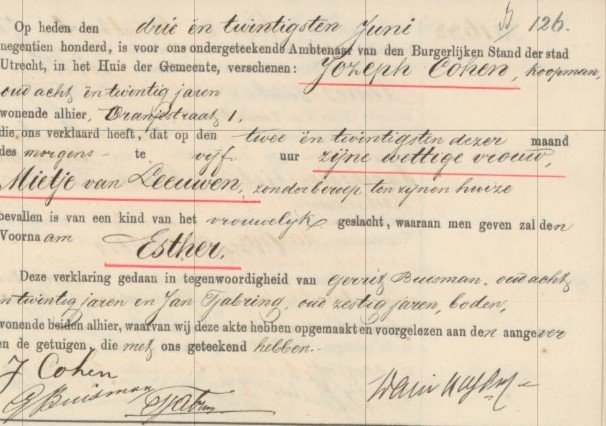 126.
Op heden den drie en twintigsten Juni
negentien honderd, is voor ons ondergeteekende Ambtenaar van den Burgerlijken Stand der stad
Utrecht, in het Huis der Gemeente, verschenen: Jozeph Cohen, koopman,
oud acht en twintig jaren
wonende alhier, Oranjestraat 1,
die ons verklaard heeft, dat op den twee en twintigsten dezer maand
des morgens te vijf uur zijne wettige vrouw,
Mietje van Leeuwen, zonder beroep ten zijnen huize
bevallen is van een kind van het vrouwelijk geslacht, waaraan men geven zal den
Voornaam Esther.
Deze verklaring gedaan in tegenwoordigheid van Gerrit Buisman, oud acht
en twintig jaren en Jan Tjabring, oud zestig jaren, boden,
wonende beiden alhier, waarvan wij deze akte hebben opgemaakt en voorgelezen aan den aangever
en de getuigen, die met ons geteekend hebben.
J Cohen
G Buisman